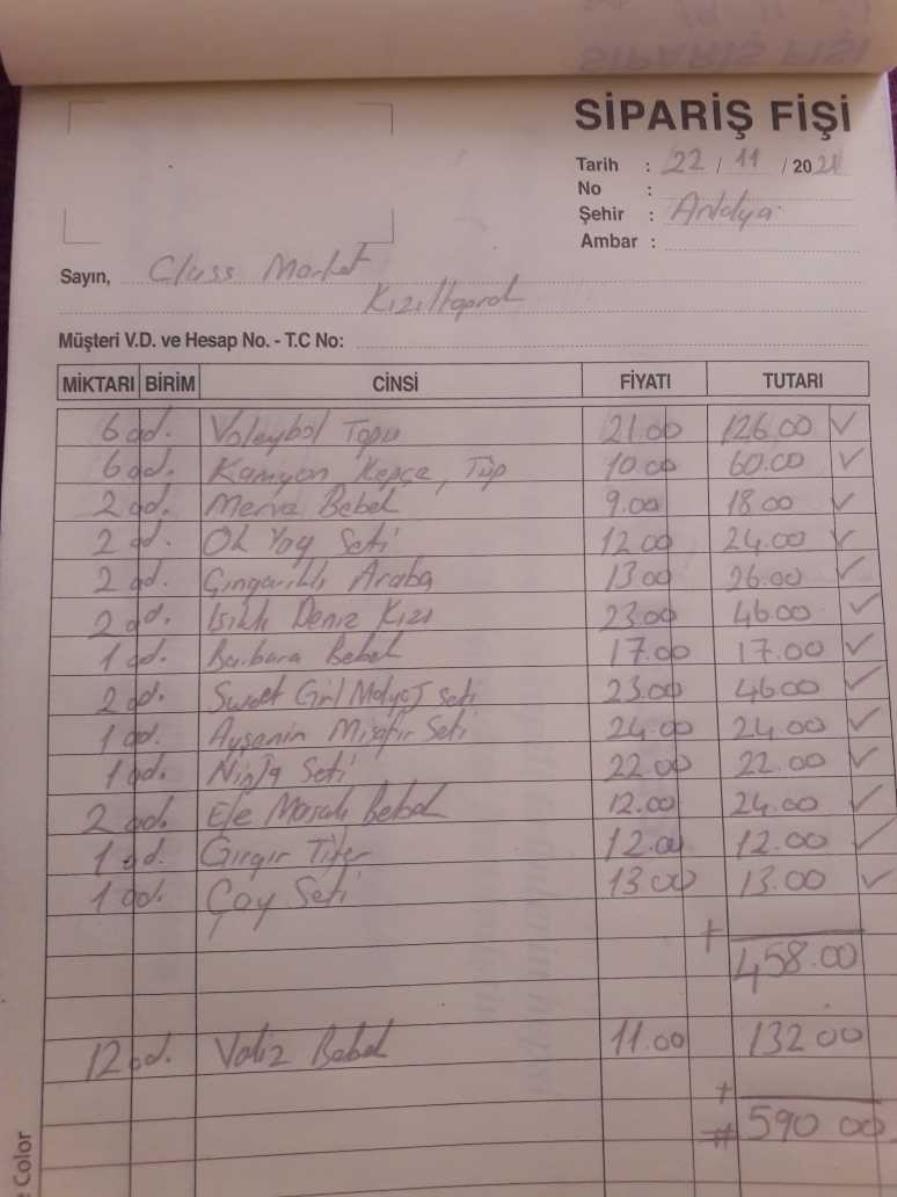 SİPARİŞ FİŞİ
Tarih : 22 / 11 / 2021
No :
Şehir : Antalya
Ambar :
Sayın, Class Market
Kızıltoprak
Müşteri V.D. ve Hesap No. - T.C No:
MİKTARI BİRİM CİNSİ FİYATI TUTARI
6 ad. Voleybol Topu 21.00 126.00 ✓
6 ad. Kamyon Kepçe, Tüp 10.00 60.00 ✓
2 ad. Merve Bebek 9.00 18.00 ✓
2 ad. Ok Yay Seti 12.00 24.00 ✓
2 ad. Çıngıraklı Araba 13.00 26.00 ✓
2 ad. Işıklı Deniz Kızı 23.00 46.00 ✓
1 ad. Barbara Bebek 17.00 17.00 ✓
2 ad. Sweet Girl Makyaj Seti 23.00 46.00 ✓
1 ad. Ayşenin Misafir Seti 24.00 24.00 ✓
1 ad. Ninja Seti 22.00 22.00 ✓
2 ad. Efe Masalı Bebek 12.00 24.00 ✓
1 ad. Gırgır 12.00 12.00 ✓
1 ad. Çay Seti 13.00 13.00 ✓
+ 458.00
12 ad. Valiz Bebek 11.00 132.00
+
# 590.00
Color